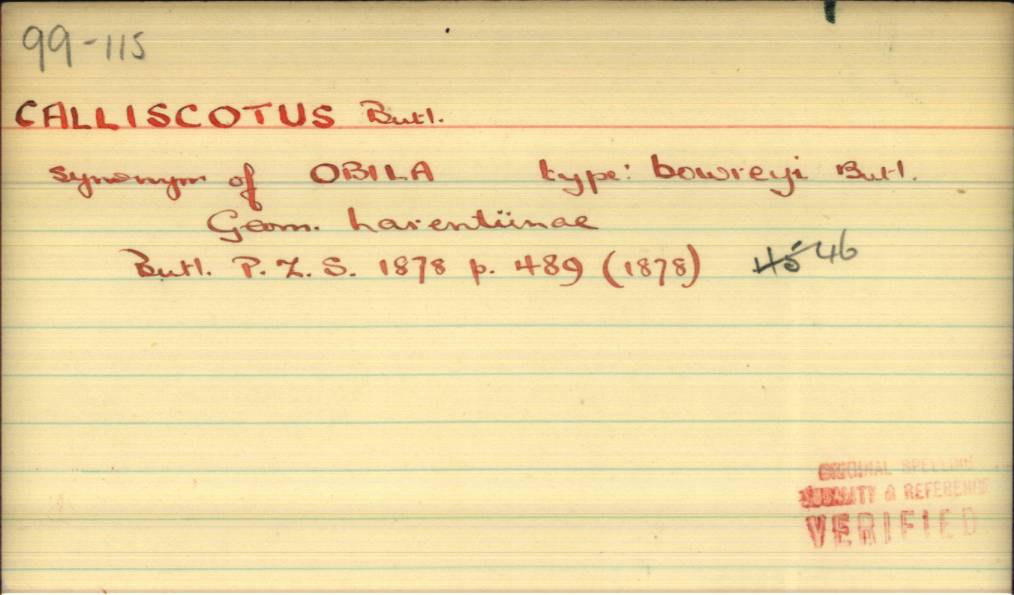 99-115
CALLISCOTUS Butl.
synonym of OBILA type: bowreyi Butl.
Geom. larentiinae
Butl. P. Z. S. 1878 p. 489 (1878) 45 46
ORIGINAL SPELLING
& REFERENCE
VERIFIED